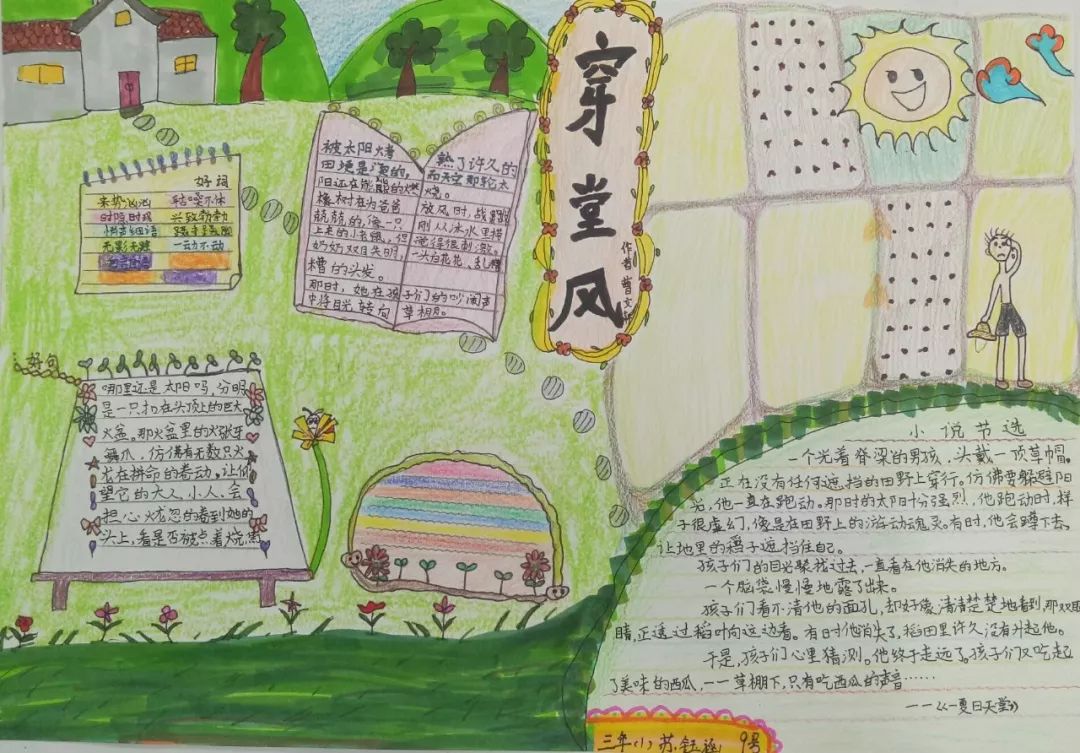 穿堂风
作者 曹文轩
好词
来势汹汹 咕噜不休
时隐时现 兴致勃勃
悄声细语
无影无踪 一动不动
被太阳烤 熟了许久的
田埂是烫的,而天空那轮太
阳还在熊熊的燃烧。
橡树在为爸爸放风时,战战
兢兢的,像一只刚从冰水里捞
上来的小老鼠,但觉得很刺激。
奶奶双目失明,一头白花花、乱糟
糟的头发。
那时,她在孩子们的吵闹声
中将目光转向草棚。
好句
哪里还是太阳吗,分明
是一只扣在头顶上的巨大
火盆。那火盆里的火张牙
舞爪,仿佛有无数只火
龙在拼命的卷动,让仰
望它的大人、小人,会
担心忧忽的看到她的
头上,看是否被点着烧焦
小说节选
一个光着脊梁的男孩,头戴一顶草帽。
正在没有任何遮挡的田野上穿行。仿佛要躲避阳
光,他一直在跑动。那时的太阳十分强烈,他跑动时,样
子很虚幻,像是在田野上的游动魂灵。有时,他会蹲下去,
让地里的稻子遮挡住自己。
孩子们的目光聚找过去,一直看在他消失的地方。
一个脑袋慢慢地露了出来。
孩子们看不清他的面孔,却好像清清楚楚地看到,那双眼
睛,正透过稻叶向这边看。有时他消失了,稻田里许久没有升起他。
于是,孩子们心里猜测。他终于走远了。孩子们又吃起
了美味的西瓜,一一草棚下,只有吃西瓜的声音……
——《夏日天堂》
三年(1) 苏钰涵 9号